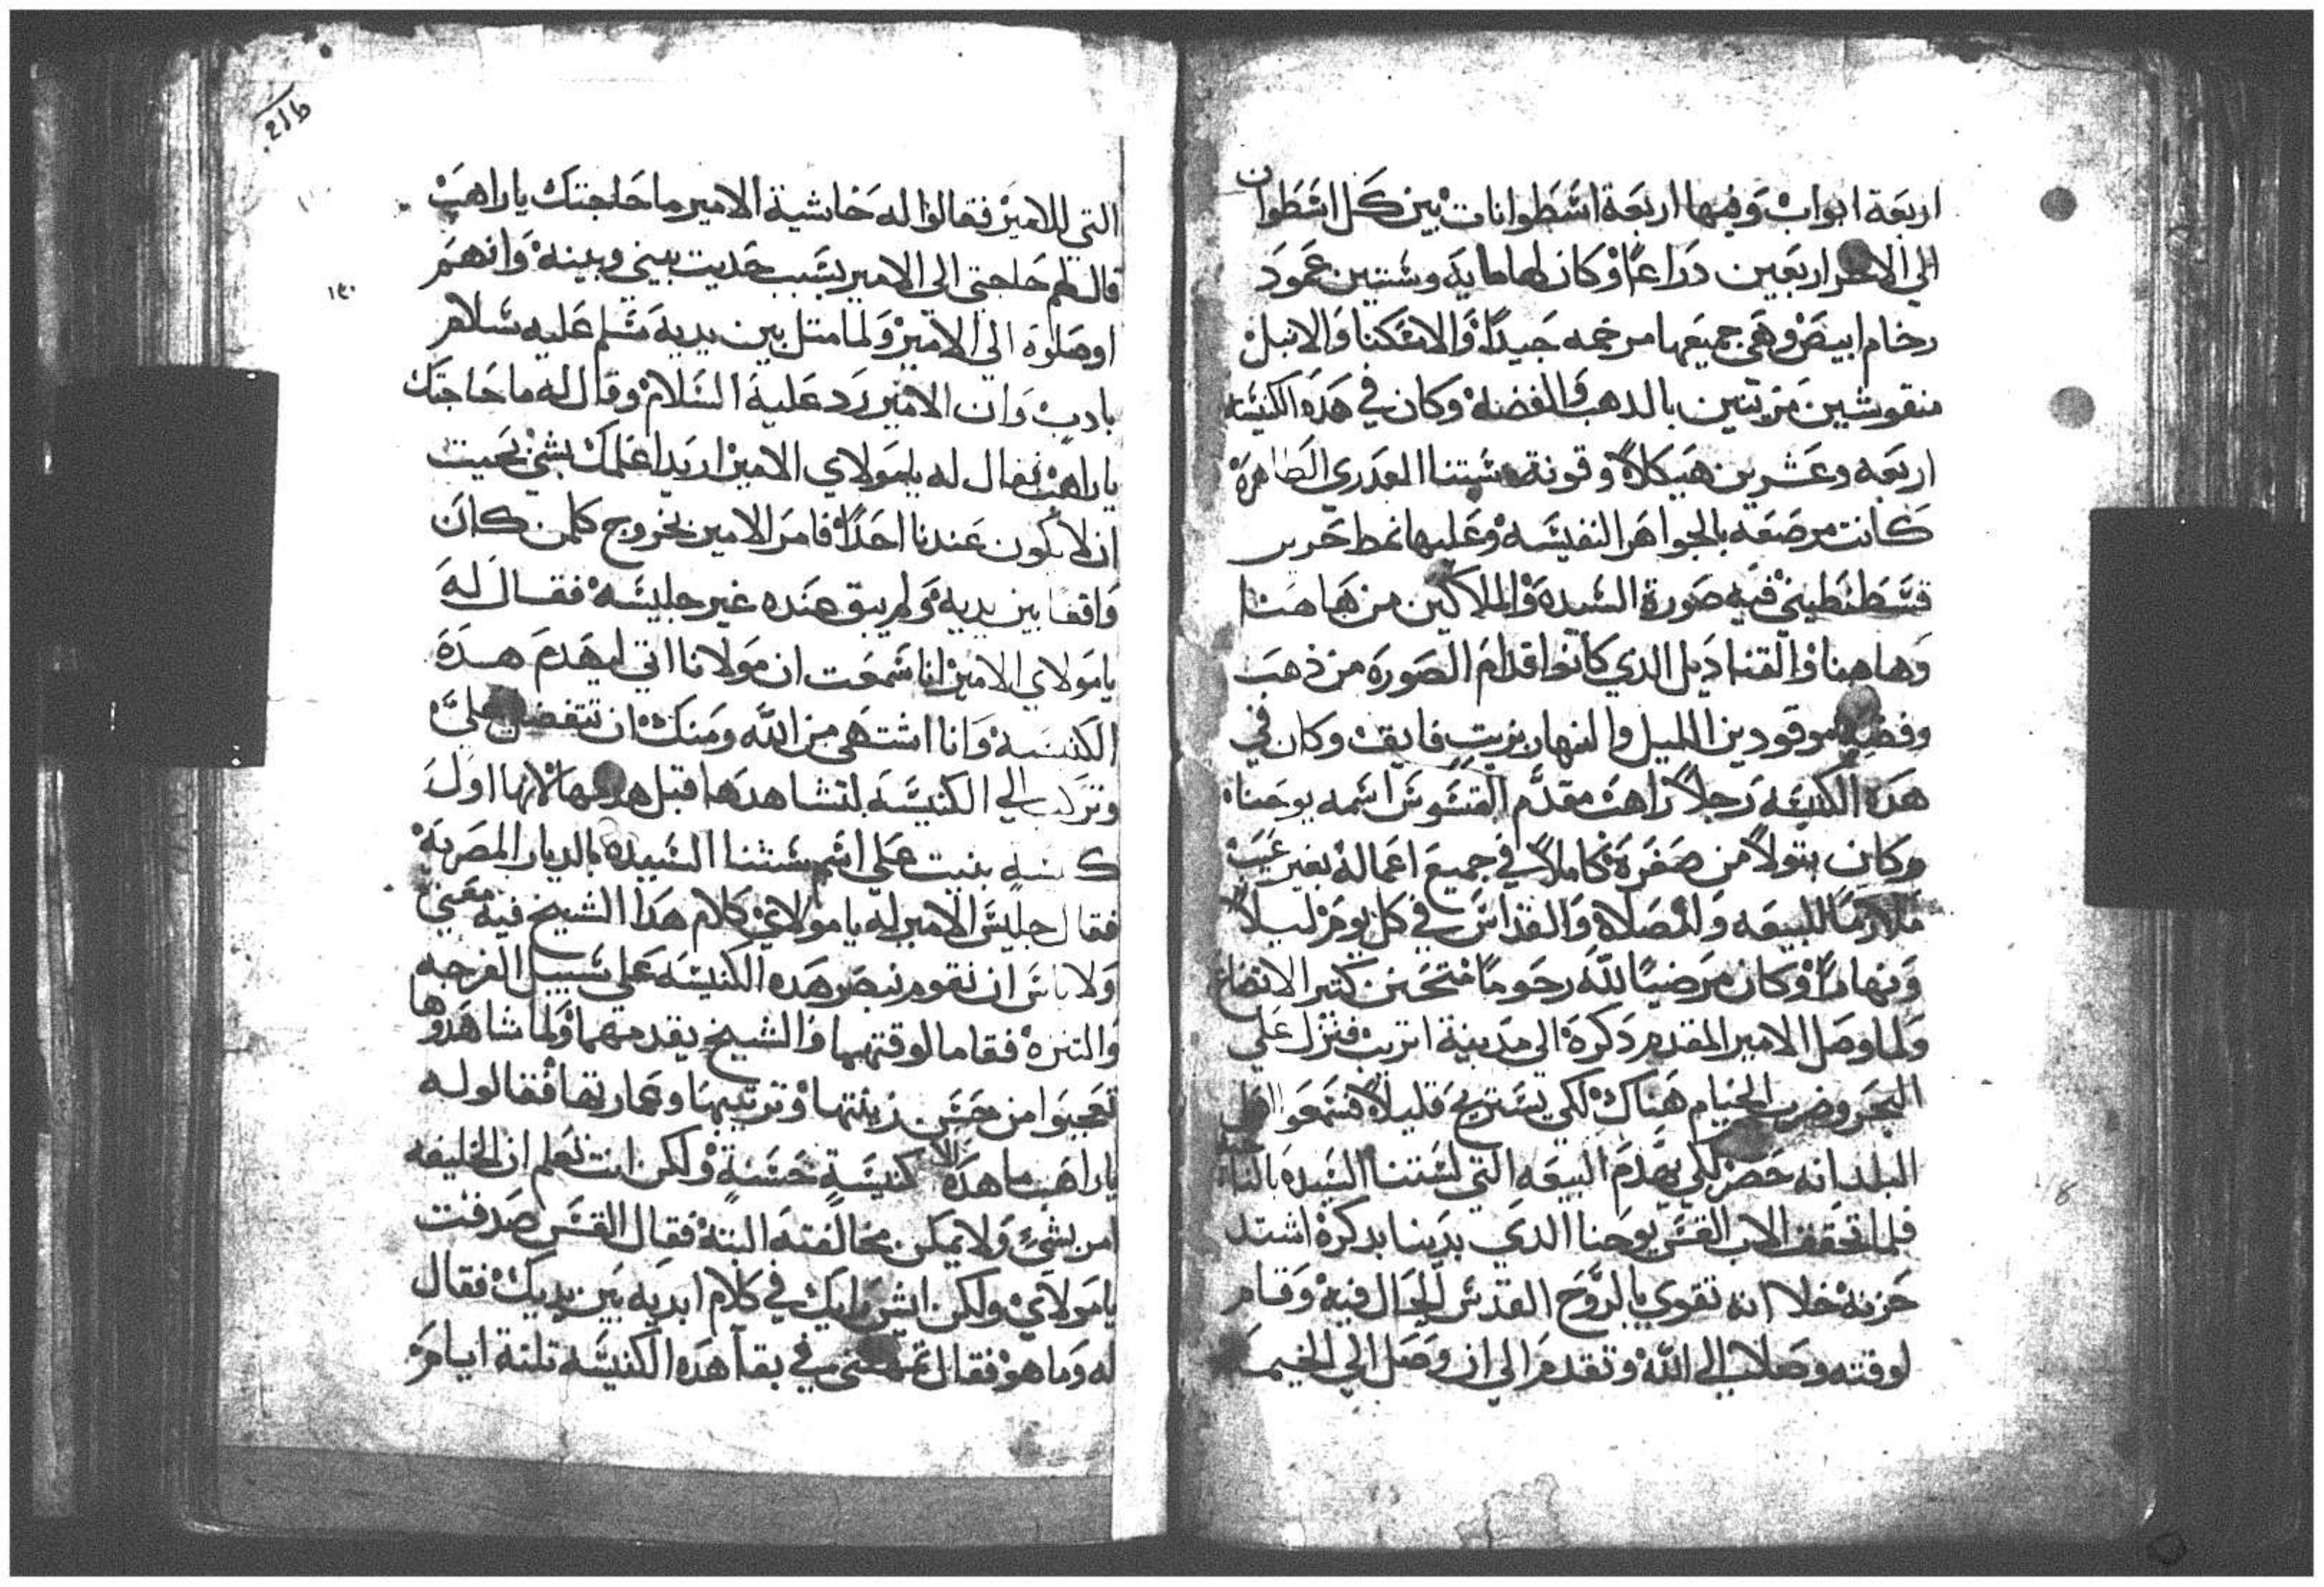 اربعة ابواب وفيها اربعة اسطوانات بين كل اسطوان
الي الاخر اربعين دراعًا وكان لها مايه وستين عمود
رخام ابيض وهي جميعها مرخمه جيدًا والاسكنا والانبل
منقوشين مزينين بالدهب والفضه وكان في هده الكنيسه
اربعه وعشرين هيكلاً وقونة ستنا العدري الطاهرة
كانت مرصعه بالجواهر النفيسه وعليها نمط حرير
قسطنطيني فيه صورة السيده والملاكين من هاهنا
وهاهنا والقناديل الدي كانوا قدام الصوره من ذهب
وفضه موقودين الليل والنهار بزيت فايق وكان في
هده الكنيسه رجلاً راهب مقدم القسوس اسمه يوحنا
وكان بتولاً من صغره كاملاً في جميع اعماله بغير عيب
ملازمًا للبيعه والصلاة والقداس في كل يوم ليلاً
ونهارًا وكان مرضيًا لله رحومًا متحنن كتير الاتضاع
ولما وصل الامير المقدم دكره الي مدينة اتريب فنزل علي
البحر وضرب الخيام هناك لكي يستريح قليلاً فسمعوا اهل
البلد انه حضر لكي يهدم البيعه التي لستنا السيده
فلما تحقق الاب القس يوحنا الدي بدينا بدكره اشتد
حزنه خلا انه تقوي بالروح القدس الحال فيه وقام
لوقته وصلا الي الله وتقدم الي ان وصل الي الخيم
التي للامير فقالوا له حاشية الامير ما حاجتك ياراهب
قال لهم حاجتي الي الامير بسبب حديت بيني وبينه وانهم
اوصلوه الي الامير ولما متل بين يديه سلم عليه سلام
بادب وان الامير رد عليه السلام وقال له ما حاجتك
ياراهب فقال له يامولاي الامير اريد اعلمك بشي بحيت
ان لا يكون عندنا احدًا فامر الامير بخروج كلمن كان
واقفًا بين يديه ولم يبق عنده غير جليسه فقال له
يامولاي الامير انا سمعت ان مولانا اتي ليهدم هده
الكنيسه وانا اشتهي من الله ومنك ان تتفضل علي
وتركب الي الكنيسه لتشاهدها قبل هدمها لانها اول
كنيسه بنيت علي اسم ستنا السيده بالديار المصريه
فقال جليس الامير له يا مولاي كلام هدا الشيخ فيه معني
ولا باس ان نقوم نبصر هده الكنيسه علي سبيل الفرجه
والتنزه فقاما لوقتهما والشيخ يقدمهما ولما شاهدوها
تعجبوا من حسن زينتها وترتيبها وعمارتها فقالوا له
ياراهب ما هده الا كنيسةٍ حسنةٍ ولكن انت تعلم ان الخليفه
امر بشيٍ ولا يمكن مخالفته البته فقال القس صدقت
يامولاي ولكن ايش رايك في كلام ابديه بين يديك فقال
له وما هو فقال تمهلني في بقا هده الكنيسه تلتة ايام
١٤٠